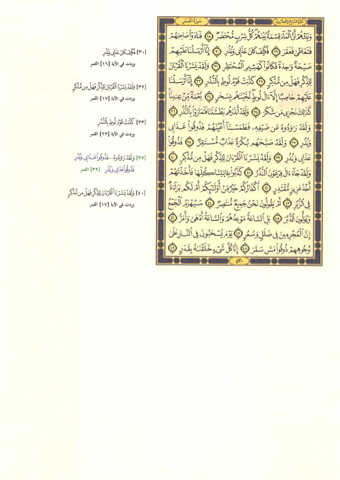 الجزء السابع والعشرون
سورة القمر
وَنَبِّئْهُمْ أَنَّ الْمَاءَ قِسْمَةٌ بَيْنَهُمْ كُلُّ شِرْبٍ مُحْتَضَرٌ ٢٨ فَنَادَوْا صَاحِبَهُمْ
فَتَعَاطَىٰ فَعَقَرَ ٢٩ فَكَيْفَ كَانَ عَذَابِي وَنُذُرِ ٣٠ إِنَّا أَرْسَلْنَا عَلَيْهِمْ
صَيْحَةً وَاحِدَةً فَكَانُوا كَهَشِيمِ الْمُحْتَظِرِ ٣١ وَلَقَدْ يَسَّرْنَا الْقُرْآنَ
لِلذِّكْرِ فَهَلْ مِنْ مُدَّكِرٍ ٣٢ كَذَّبَتْ قَوْمُ لُوطٍ بِالنُّذُرِ ٣٣ إِنَّا أَرْسَلْنَا
عَلَيْهِمْ حَاصِبًا إِلَّا آلَ لُوطٍ نَجَّيْنَاهُمْ بِسَحَرٍ ٣٤ نِعْمَةً مِنْ عِنْدِنَا
كَذَٰلِكَ نَجْزِي مَنْ شَكَرَ ٣٥ وَلَقَدْ أَنْذَرَهُمْ بَطْشَتَنَا فَتَمَارَوْا بِالنُّذُرِ ٣٦
وَلَقَدْ رَاوَدُوهُ عَنْ ضَيْفِهِ فَطَمَسْنَا أَعْيُنَهُمْ فَذُوقُوا عَذَابِي
وَنُذُرِ ٣٧ وَلَقَدْ صَبَّحَهُمْ بُكْرَةً عَذَابٌ مُسْتَقِرٌّ ٣٨ فَذُوقُوا
عَذَابِي وَنُذُرِ ٣٩ وَلَقَدْ يَسَّرْنَا الْقُرْآنَ لِلذِّكْرِ فَهَلْ مِنْ مُدَّكِرٍ ٤٠
وَلَقَدْ جَاءَ آلَ فِرْعَوْنَ النُّذُرُ ٤١ كَذَّبُوا بِآيَاتِنَا كُلِّهَا فَأَخَذْنَاهُمْ
أَخْذَ عَزِيزٍ مُقْتَدِرٍ ٤٢ أَكُفَّارُكُمْ خَيْرٌ مِنْ أُولَٰئِكُمْ أَمْ لَكُمْ بَرَاءَةٌ
فِي الزُّبُرِ ٤٣ أَمْ يَقُولُونَ نَحْنُ جَمِيعٌ مُنْتَصِرٌ ٤٤ سَيُهْزَمُ الْجَمْعُ
وَيُوَلُّونَ الدُّبُرَ ٤٥ بَلِ السَّاعَةُ مَوْعِدُهُمْ وَالسَّاعَةُ أَدْهَىٰ وَأَمَرُّ ٤٦
إِنَّ الْمُجْرِمِينَ فِي ضَلَالٍ وَسُعُرٍ ٤٧ يَوْمَ يُسْحَبُونَ فِي النَّارِ عَلَىٰ
وُجُوهِهِمْ ذُوقُوا مَسَّ سَقَرَ ٤٨ إِنَّا كُلَّ شَيْءٍ خَلَقْنَاهُ بِقَدَرٍ ٤٩
٥٣٠
[٣٠] فَكَيْفَ كَانَ عَذَابِي وَنُذُرِ
وردت في الآية [١٦] القمر
[٣٢] وَلَقَدْ يَسَّرْنَا الْقُرْآنَ لِلذِّكْرِ فَهَلْ مِنْ مُدَّكِرٍ
وردت في الآية [١٧] القمر
[٣٣] كَذَّبَتْ قَوْمُ لُوطٍ بِالنُّذُرِ
وردت في الآية [٢٣] القمر
[٣٧] وَلَقَدْ رَاوَدُوهُ ... فَذُوقُوا عَذَابِي وَنُذُرِ
فَذُوقُوا عَذَابِي وَنُذُرِ [٣٩] القمر
[٤٠] وَلَقَدْ يَسَّرْنَا الْقُرْآنَ لِلذِّكْرِ فَهَلْ مِنْ مُدَّكِرٍ
وردت في الآية [١٧] القمر